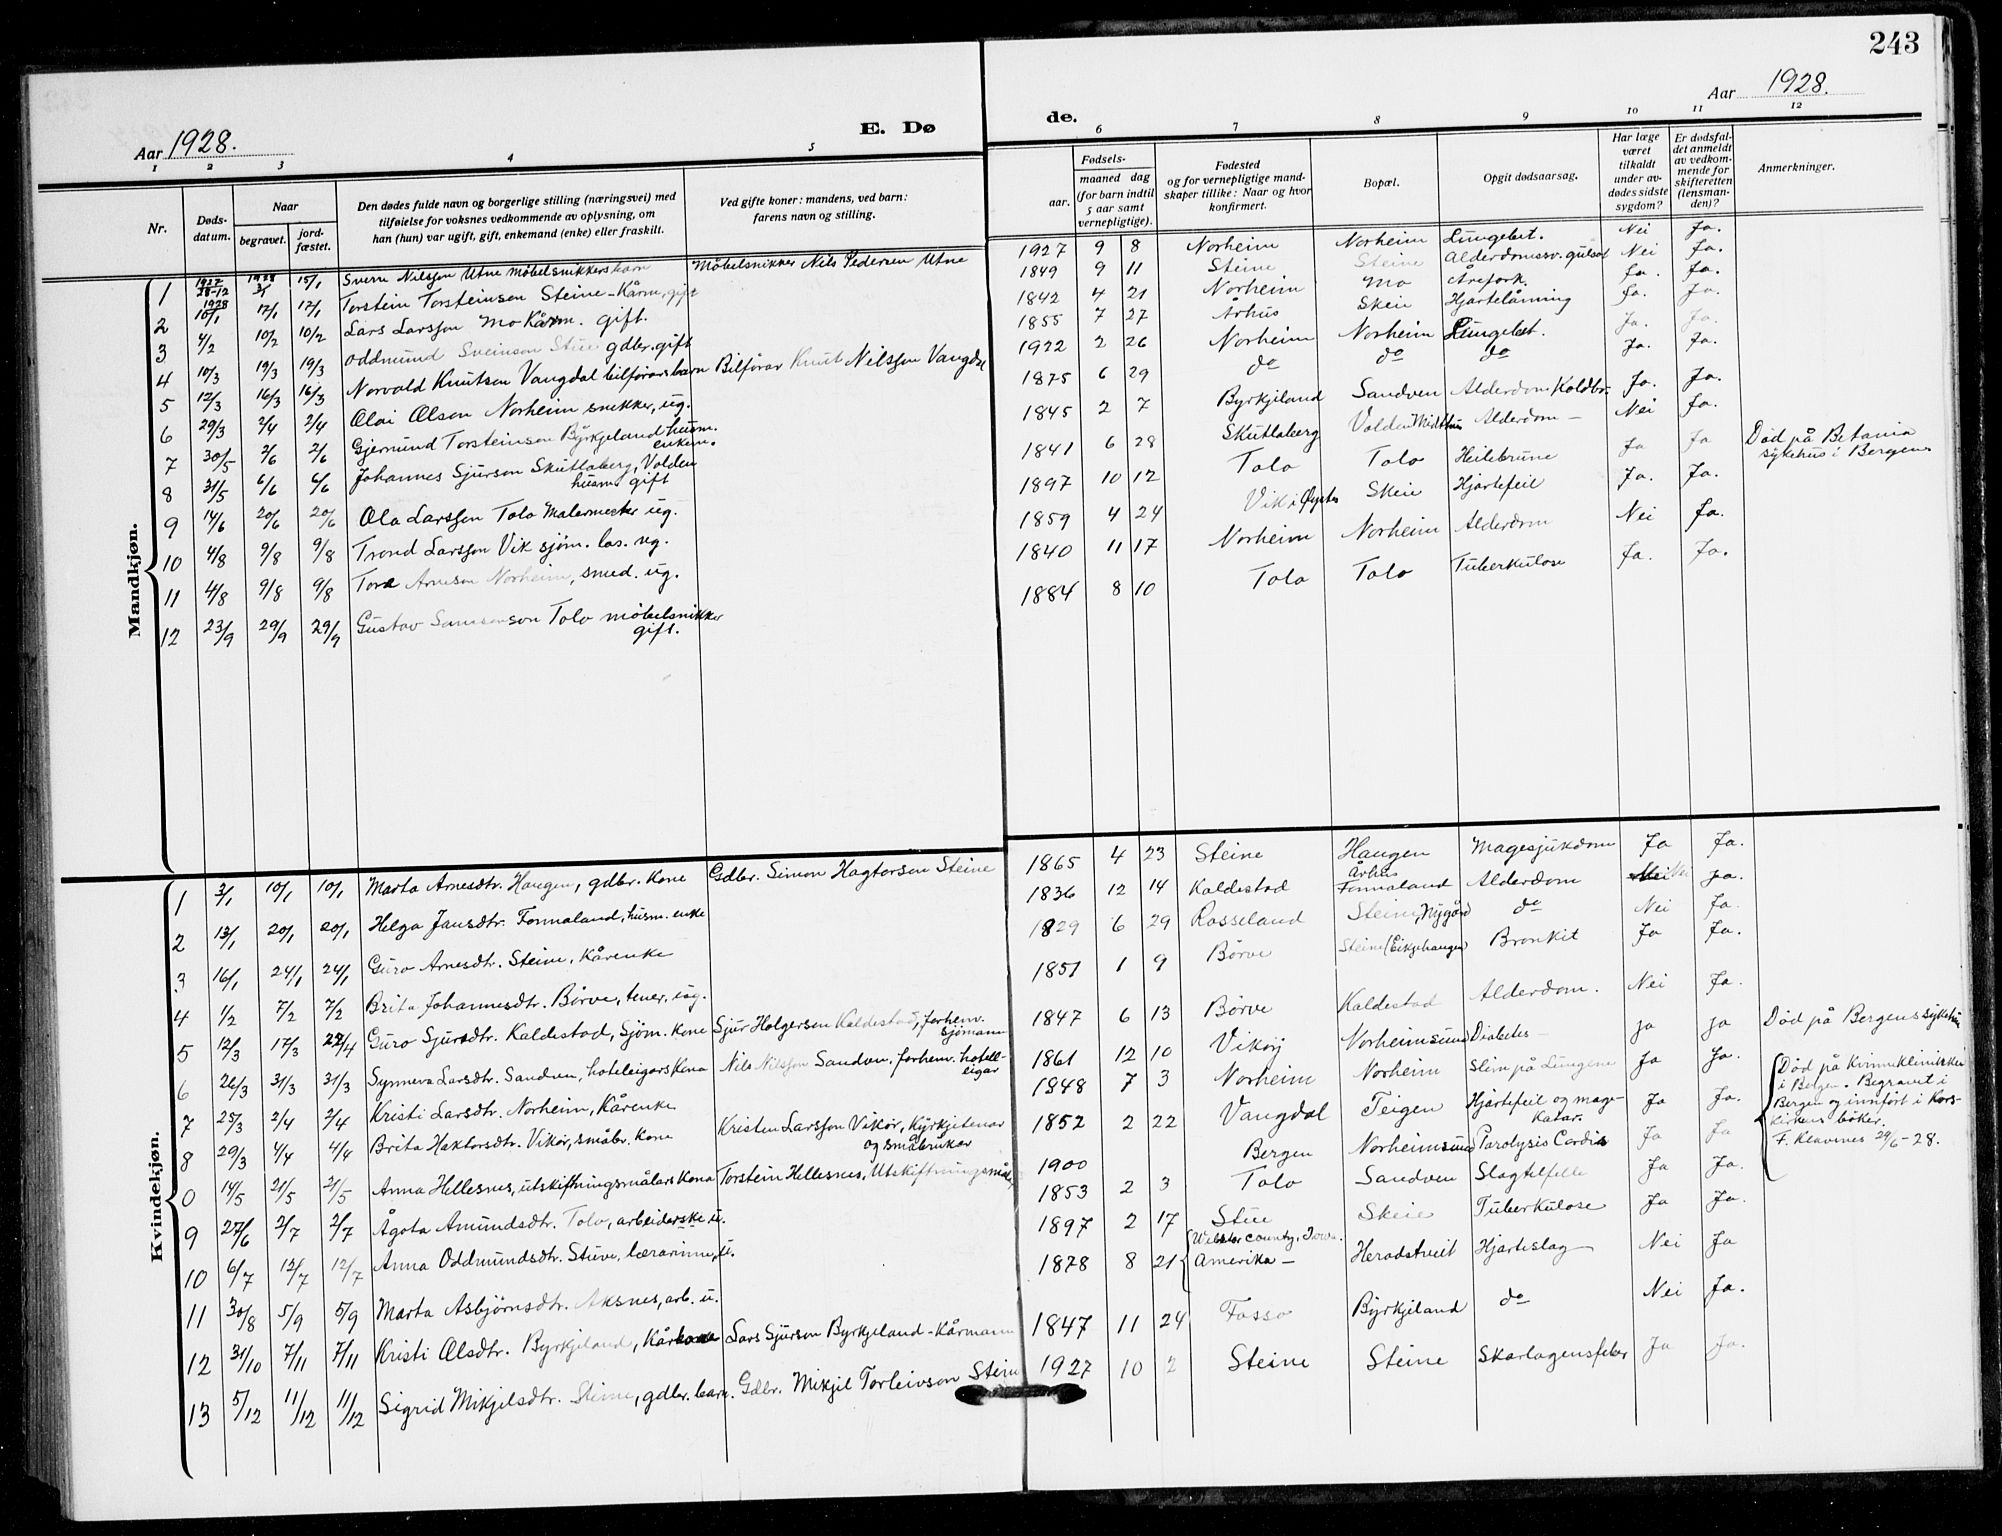 243
Aar 1928. E. Dø de. Aar 1928.
1 2 3 4 5 6 7 8 9 10 11 12
Nr.
Døds-
datum.
Naar
begravet.
jord-
fæstet.
Den dødes fulde navn og borgerlige stilling (næringsvei) med
tilføielse for voksnes vedkommende av oplysning, om
han (hun) var ugift, gift, enkemand (enke) eller fraskilt.
Ved gifte koner: mandens, ved barn:
farens navn og stilling.
Fødsels-
aar.
maaned dag
(for barn indtil
5 aar samt
vernepligtige).
Fødested
og for vernepligtige mand-
skaper tillike: Naar og hvor
konfirmert.
Bopæl.
Opgit dødsaarsag.
Har læge
været
tilkaldt
under av-
dødes sidste
sygdom?
Er dødsfal-
det anmeldt
av vedkom-
mende for
skifteretten
(lensman-
den)?
Anmerkninger.
Mandkjøn.
1 1927 28-12 1928 3/1 15/1 Sverre Nilsson Utne møbelsnikkers barn Møbelsnikker Nils Pedersen Utne 1927 9 8 Norheim Norheim Lungebet. Nei Ja.
2 1928 10/1 17/1 17/1 Torstein Torsteinson Steine-Kårm, gift 1849 9 11 Steine Steine Alderdomssv. gulsot Nei Ja.
3 4/2 10/2 10/2 Lars Larsson Mo Kårm. gift. 1842 4 21 Norheim Mo Ja. Ja.
4 10/3 19/3 19/3 Oddmund Sveinson Stue gdbr. gift 1855 7 27 Århus Skeie Hjartelåming Ja. Ja.
5 12/3 16/3 16/3 Norvald Knutsen Vangdal bilførars barn Bilførar Knut Nilsson Vangdal 1922 2 26 Norheim Norheim Lungebet. Ja. Ja.
6 29/3 2/4 2/4 Olai Olson Norheim snekker, ug. 1875 6 29 do do do Ja. Ja.
7 30/5 2/6 2/6 Gjermund Torsteinson Byrkjeland husm.
enkem. 1845 2 7 Byrkjeland Sandven Alderdom Ja. Ja.
8 31/5 6/6 6/6 Johannes Sjurson Skutlaberg, Volden
husm. gift 1841 6 28 Skutlaberg Volden Alderdom — Nei Ja.
9 14/6 20/6 20/6 Ola Larsson Tolo Malermester ug. 1897 10 12 Tolo Tolo Heilebrune Ja Ja Død på Betania
sykehus i Bergen.
10 4/8 9/8 9/8 Trond Larsson Vik sjøm. los. ug. 1859 4 24 Vik i Øystes Skeie Hjartefeil Ja. Ja.
11 4/8 9/8 9/8 Tore Arneson Norheim, smed. ug. 1840 11 17 Norheim Norheim Alderdom Nei Ja.
12 23/9 29/9 29/9 Gustav Samsonson Tolo møbelsnikker
gift. 1884 8 10 Tolo Tolo Tuberkulose Ja. Ja.
Kvindekjøn.
1 3/1 10/1 10/1 Marta Arnesdtr. Haugen, gdbr. kone Gdbr. Simon Hagtorson Steine 1865 4 23 Steine Haugen Magesjukdom Ja Ja.
2 13/1 20/1 20/1 Helga Jansdtr. Fonnaland, husm. enke 1836 12 14 Kaldestad Århus
Fonnaland Alderdom Nei Ja.
3 16/1 24/1 24/1 Guro Arnesdtr. Steine, Kårenke 1829 6 29 Rosseland Steine, Nygård do Nei Ja.
4 1/2 7/2 7/2 Brita Johannesdtr. Børve, tener, ug. 1851 1 9 Børve Steine (Eikjehaugen) Bronkit Ja Ja.
5 12/3 17/3 22/4 Guro Sjursdtr. Kaldestad, Sjøm. kone Sjur Holgersen Kaldestad, forhenv.
sjømann 1847 6 13 Børve Kaldestad Alderdom. Nei Ja.
6 26/3 31/3 31/3 Synneva Larsdtr. Sandven, hoteleigars kona Nils Nilsson Sandven, forhenv. hotell-
eigar 1861 12 10 Vikøy Norheimsund Diabetes — Ja Ja Død på Bergens sykehus
7 25/3 2/4 2/4 Kristi Larsdtr. Norheim, Kårenke 1848 7 3 Norheim Norheim Slim på Lungene Ja Ja.
8 29/3 4/4 4/4 Brita Haktorsdtr. Vikør, småbr. kone Kristen Larsson Vikør, Kyrkjetenar
og småbrukar 1852 2 22 Vangdal Teigen Hjartefeil og mage-
Katar. Ja Ja.
0 14/5 21/5 21/5 Anna Hellesnes, utskiftningsmålars kona Torstein Hellesnes, Utskiftningsmål. 1900 Bergen Norheimsund Paralysis Cordis Ja Ja Død på Kvinneklinikken
i Bergen. Begravet i
Bergen og innført i Kors-
kirkens bøker.
F. Klavenes 29/6-28.
9 27/6 2/7 2/7 Ågota Amundsdtr. Tolo, arbeiderske u. 1853 2 3 Tolo Sandven Slagtilfelle Ja Ja.
10 6/7 12/7 12/7 Anna Oddmundsdtr. Stuve, lærarinne, u. 1897 2 17 Stue Skeie Tuberkulose Ja Ja.
11 30/8 5/9 5/9 Marta Asbjørnsdtr. Aksnes, arb. u. 1878 8 21 Webster County, Iowa.
Amerika — Herodstveit Hjarteslag — Nei Ja
12 31/10 7/11 7/11 Kristi Olsdtr. Byrkjeland, Kårkona Lars Sjurson Byrkjeland-Kårmann 1847 11 24 Fosso Byrkjeland do Nei Ja.
13 5/12 11/12 11/12 Sigrid Mikjelsdtr. Steine, gdbr. barn. Gdbr. Mikjel Torleivson Steine 1927 10 2 Steine Steine Skarlagensfeber Ja Ja.